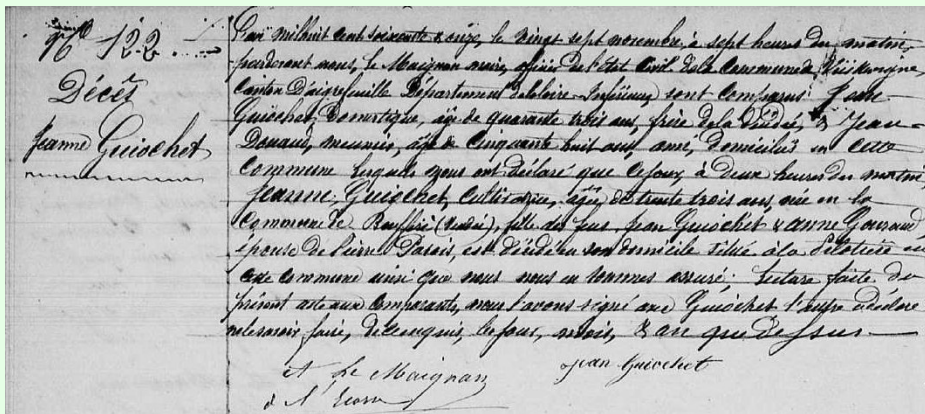 N° 122
Décès
Jeanne Guiochet
L'an mil huit cent soixante & onze, le vingt sept novembre, à sept heures du matin,
pardevant nous, le Maignan maire, officier de l'état Civil de la Commune de
Canton d'aigrefeuille Département de la loire Inférieure, sont comparus Jean
Guiochet, Domestique, âgé de quarante trois ans, frère de la Décédée, & Jean
Douaud, meunier, âgé de Cinquante huit ans, ami, domiciliés en cette
commune lesquels nous ont déclaré que ce jour, à deux heures du matin,
Jeanne Guiochet, cultivatrice, âgée de trente trois ans, née en la
Commune de (vendée), fille des feus, Jean Guiochet & anne Gouraud
épouse de Pierre est décédée en son domicile situé à la en
cette commune ainsi que nous nous en sommes assuré; Lecture faite du
présent acte aux Comparants, nous l'avons signé avec Guiochet l'autre a déclaré
ne le savoir faire, de ce enquis, les jour, mois, & an que Dessus
A Le Maignan
Jean Guiochet